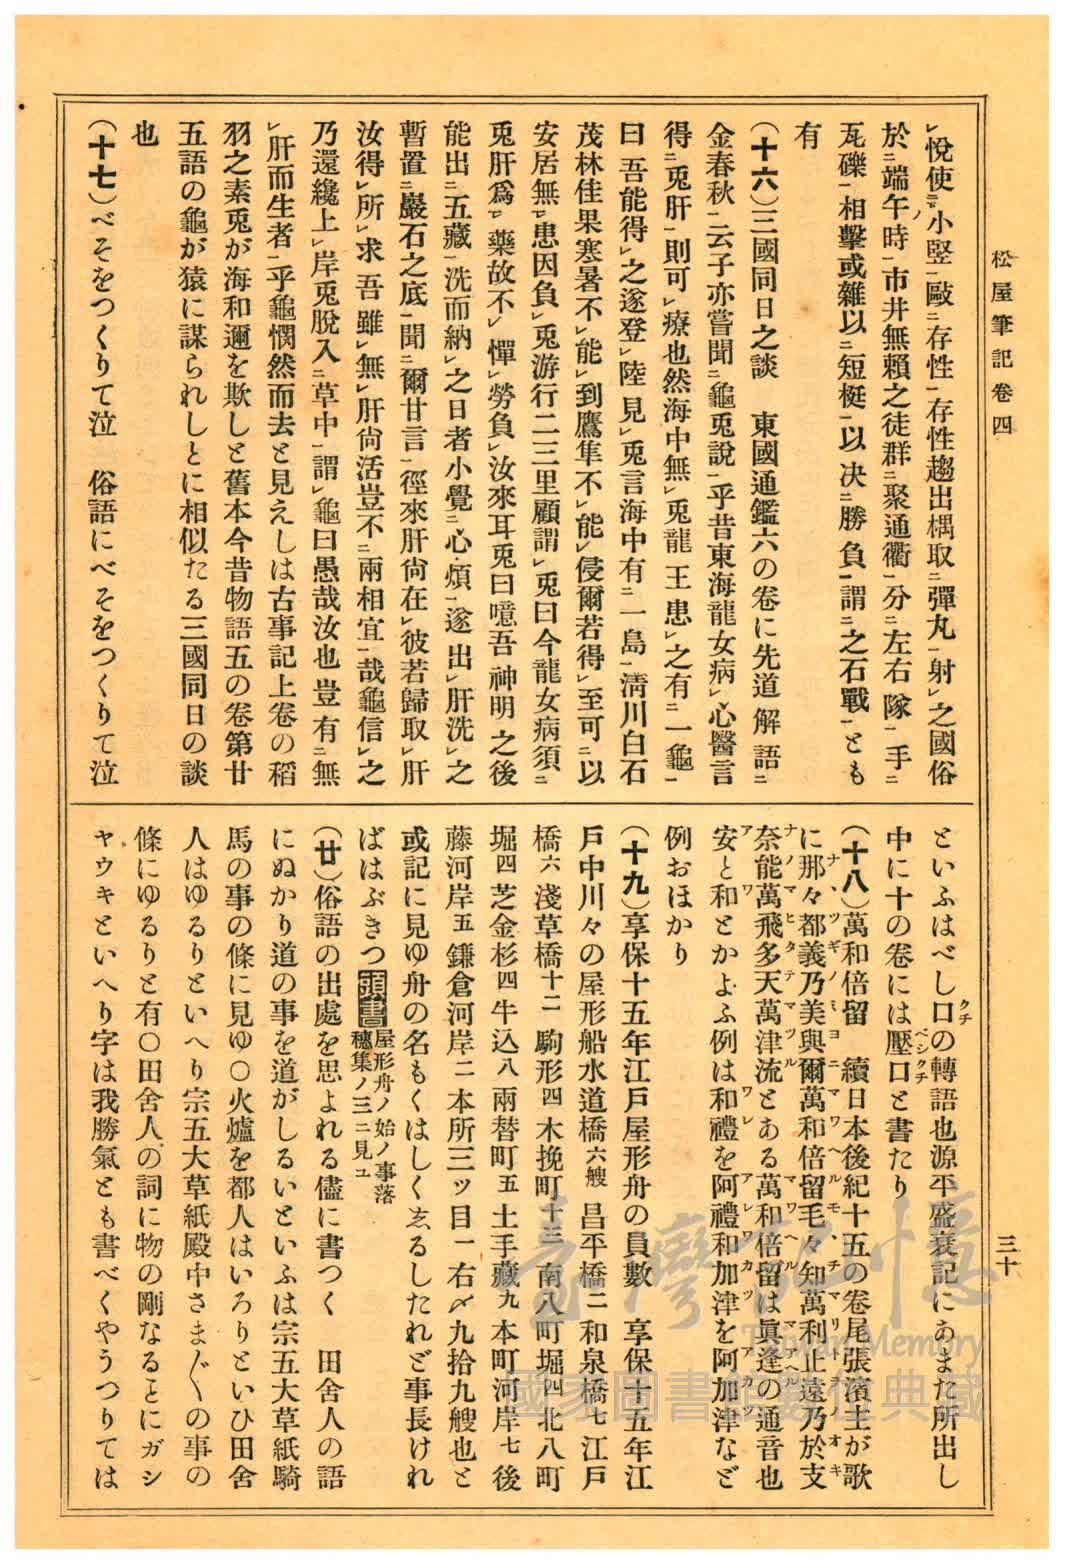 松屋筆記卷四
三十
レ悅使ニ小竪一毆ニ存性一存性趨出楀取ニ彈丸一射レ之國俗
於ニ端午ノ時一市井無賴之徒群ニ聚通衢一分ニ左右隊一手ニ
瓦礫一相擊或雜以ニ短梃一以決ニ勝負一謂ニ之石戰一とも
有
(十六)三國同日之談 東國通鑑六の卷に先道解語ニ
金春秋一云子亦嘗聞ニ龜兎說一乎昔東海龍女病レ心醫言
得ニ兎肝一則可レ療也然海中無レ兎龍王患レ之有ニ一龜一
曰吾能得レ之遂登レ陸見レ兎言海中有ニ一島一淸川白石
茂林佳果寒暑不レ能レ到鷹隼不レ能レ侵爾若得レ至可ニ以
安居無一レ患因負レ兎游行二三里顧謂レ兎曰今龍女病須ニ
兎肝爲一レ藥故不レ憚レ勞負レ汝來耳兎曰噫吾神明之後
能出ニ五藏一洗而納レ之日者小覺ニ心煩一遂出レ肝洗レ之
暫置ニ巖石之底一聞ニ爾甘言一徑來肝尙在レ彼若歸取レ肝
汝得レ所レ求吾雖レ無レ肝尙活豈不ニ兩相宜一哉龜信レ之
乃還纔上レ岸兎脫入ニ草中一謂レ龜曰愚哉汝也豈有ニ無
レ肝而生者一乎龜憫然而去と見えしは古事記上卷の稻
羽之素兎が海和邇を欺しと舊本今昔物語五の卷第廿
五語の龜が猿に謀られしとに相似たる三國同日の談
也
(十七)べそをつくりて泣 俗語にべそをつくりて泣
といふはべし口クチの轉語也源平盛衰記にあまた所出し
中に十の卷には壓口ベシクチと書たり
(十八)萬和倍留 續日本後紀十五の卷尾張濱主が歌
に那々都義乃美與爾萬和倍留毛々知萬利止遠乃於支
ナヽツギノミヨニマワヘルモヽチマリトヲノオキ
奈能萬飛多天萬津流とある萬和倍留は眞逢の通音也
ナノマヒタテマツル マワヘル マアヘル
安と和とかよふ例は和禮を阿禮和加津を阿加津など
アワ ワレ アレワカツ アカツ
例おほかり
(十九)享保十五年江戶屋形舟の員數 享保十五年江
戶中川々の屋形船水道橋六艘 昌平橋二 和泉橋七 江戶
橋六 淺草橋十二 駒形四 木挽町十三 南八町堀四 北八町
堀四 芝金杉四 牛込八 兩替町五 土手藏九 本町河岸七 後
藤河岸五 鎌倉河岸二 本所三ッ目一右〆九拾九艘也と
或記に見ゆ舟の名もくはしくゑるしたれど事長けれ
ばはぶきつ 頭書 屋形舟ノ始ノ事落穗集ノ三ニ見ユ
(廿)俗語の出處を思よれる儘に書つく 田舍人の語
にぬかり道の事を道がしるいといふは宗五大草紙騎
馬の事の條に見ゆ〇火爐を都人はいろりといひ田舍
人はゆるりといへり宗五大草紙殿中さま〴〵の事の
條にゆるりと有〇田舍人の詞に物の剛なるとにガシ
ヤウキといへり字は我勝氣とも書べくやうつりては
臺灣記憶
Taiwan Memory
國家圖書館數位典藏